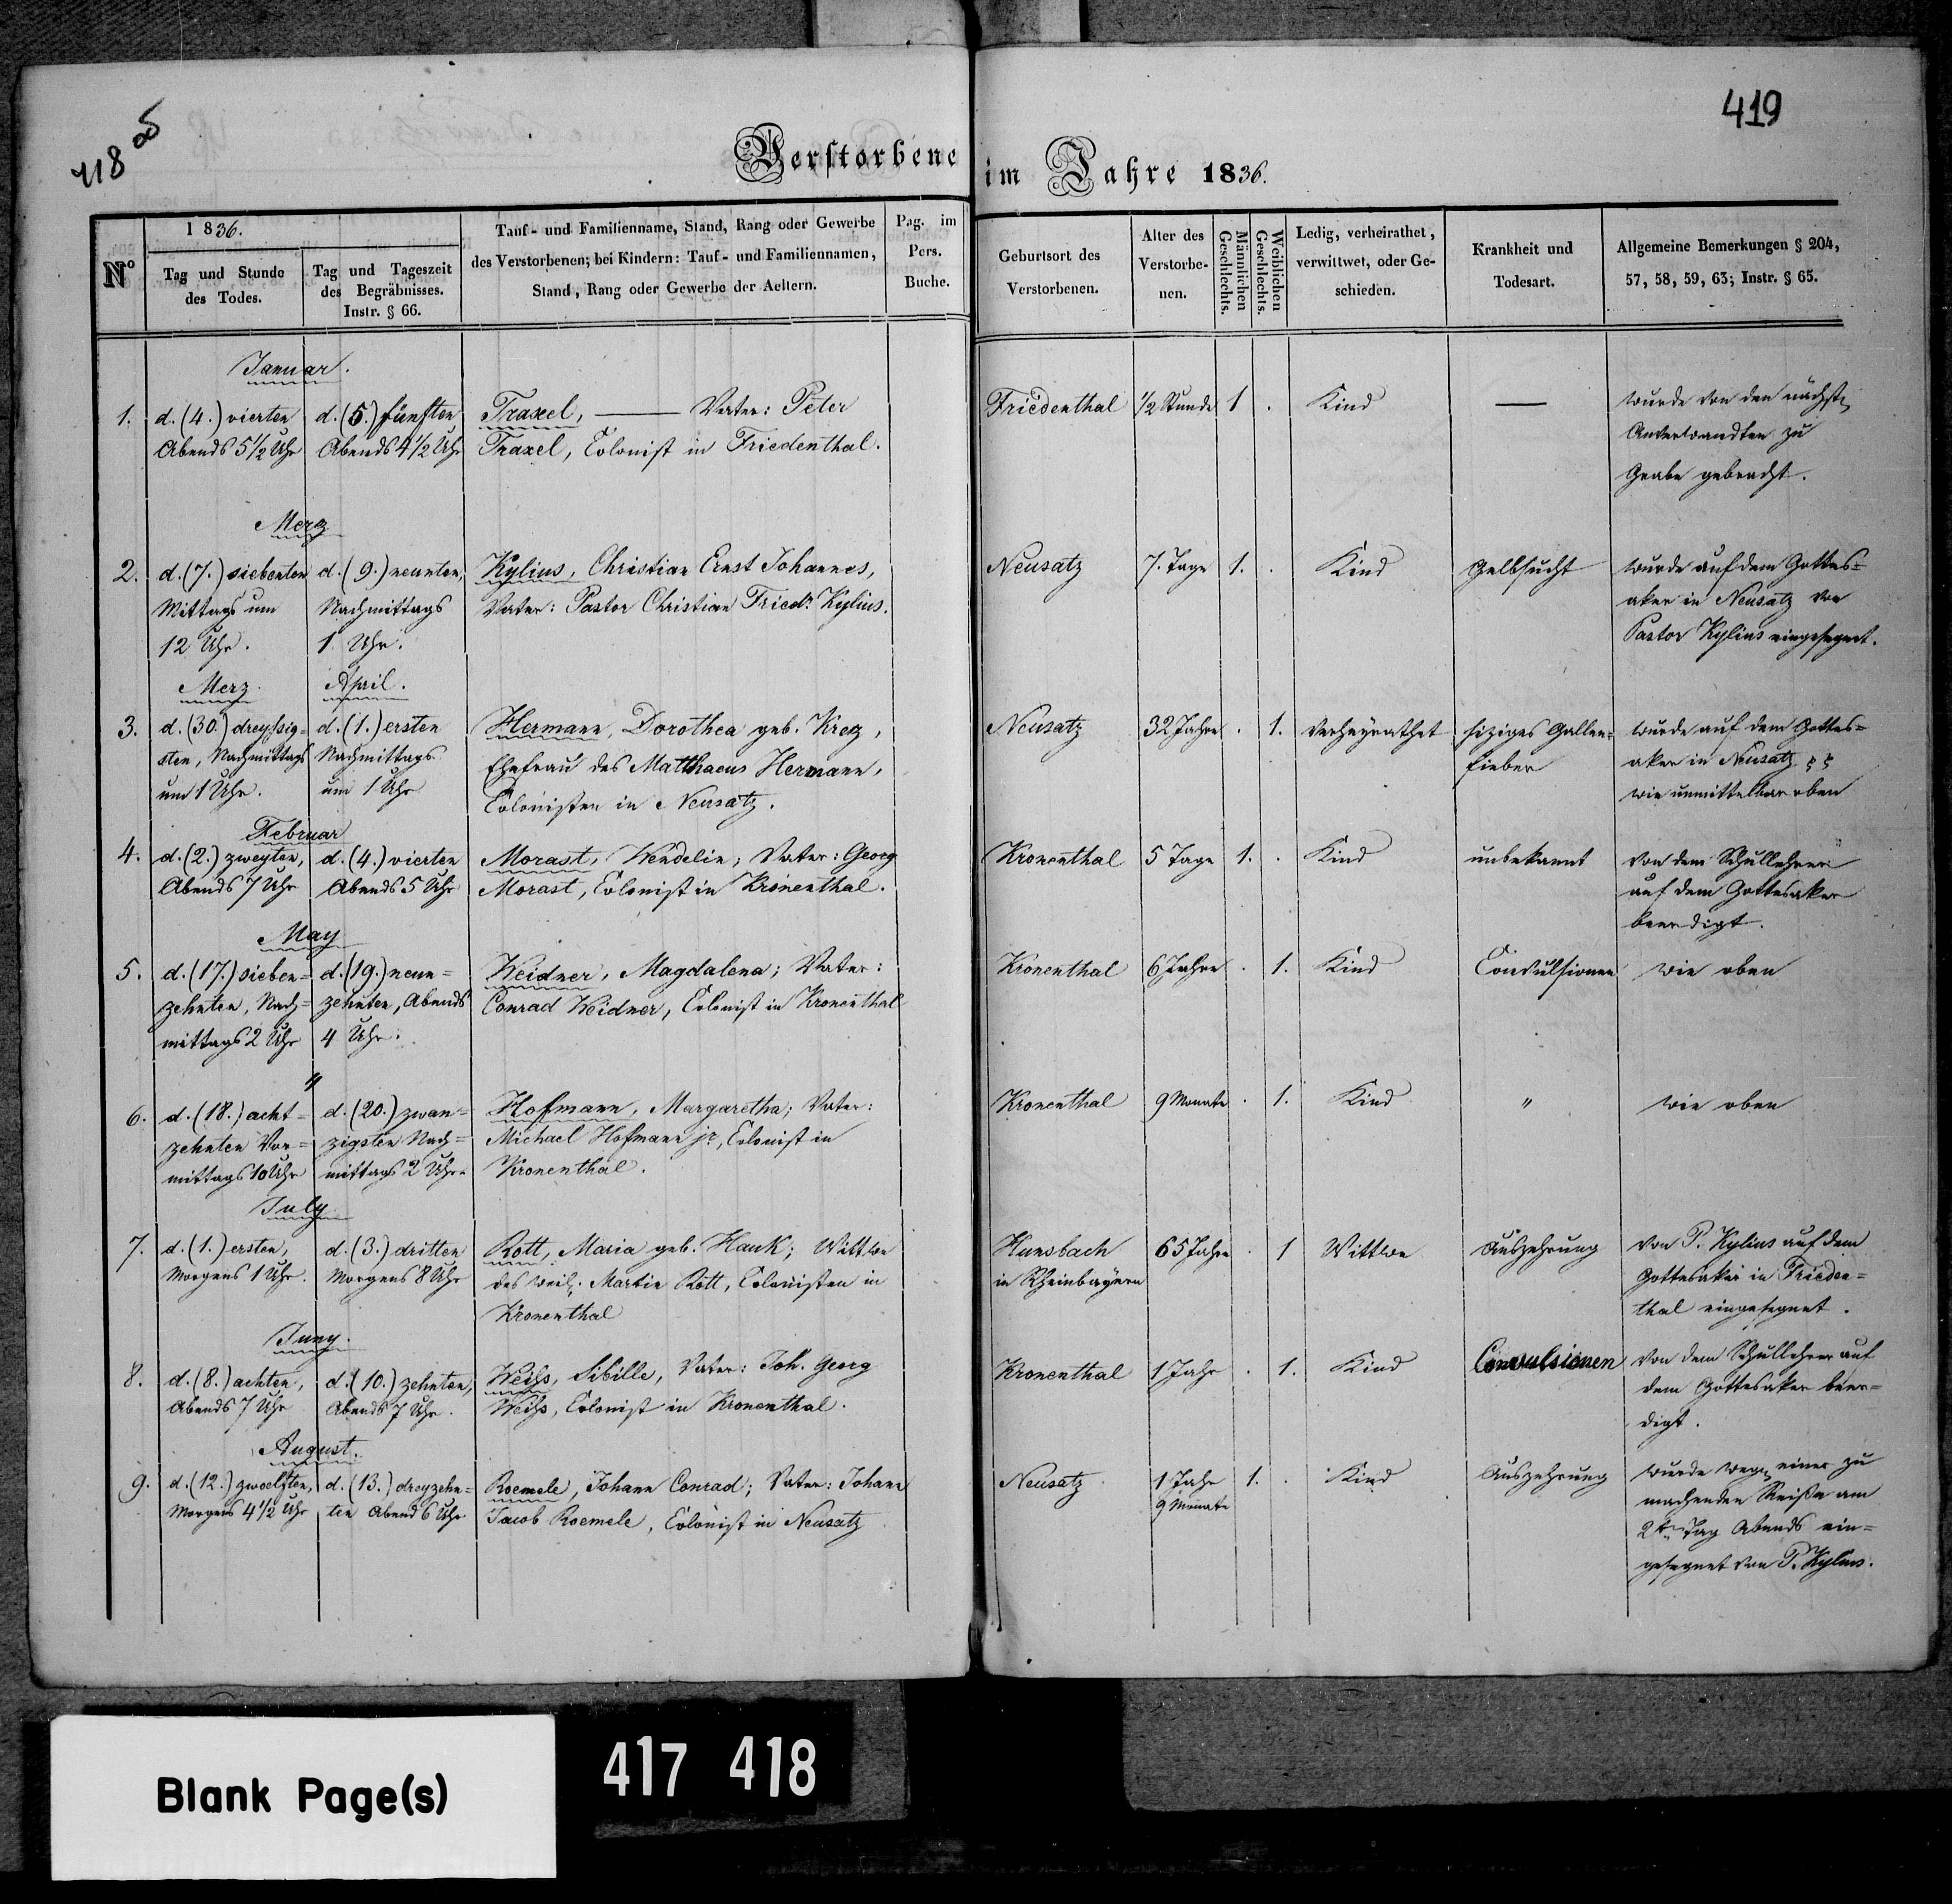 418 ob
419
Verstorbene im Jahre 1836.
N°
1836.
Tag und Stunde des Todes.
Tag und Tageszeit des Begräbnisses. Instr. § 66.
Tauf- und Familienname, Stand, Rang oder Gewerbe
des Verstorbenen; bei Kindern: Tauf- und Familiennamen,
Stand, Rang oder Gewerbe der Aeltern.
Pag. im Pers. Buche.
Geburtsort des Verstorbenen.
Alter des Verstorbenen.
Männlichen Geschlechts.
Weiblichen Geschlechts.
Ledig, verheirathet, verwittwet, oder Geschieden.
Krankheit und Todesart.
Allgemeine Bemerkungen § 204,
57, 58, 59, 63; Instr. § 65.
Januar.
1.
d. (4.) vierten
Abends 5 1/2 Uhr
d. (5.) fünften
Abends 4 1/2 Uhr
Traxel, — Vater: Peter
Traxel, Colonist in Friedenthal.
Friedenthal
1/2 Stunde
1
.
Kind
—
wurde von den nächsten
Anverwandten zu
Grabe gebracht.
Merz
2.
d. (7.) siebenten
Mittags um
12 Uhr.
d. (9.) neunten,
Nachmittags
1 Uhr.
Kylius, Christian Ernst Johannes,
Vater: Pastor Christian Friedr. Kylius.
Neusatz
7. Tage
1.
.
Kind
Gelbsucht
wurde auf dem Gottes=
aker in Neusatz von
Pastor Kylius eingesegnet.
Merz.
April.
3.
d. (30.) dreyssig=
sten, Nachmittags
um 1 Uhr.
d. (1.) ersten
Nachmittags
um 1 Uhr
Hermann, Dorothea geb. Krez,
Ehefrau des Matthaeus Hermann,
Colonisten in Neusatz.
Neusatz
32 Jahre
.
1.
Verheyrathet
hiziges Gallen=
fieber
wurde auf dem Gottes=
aker in Neusatz
wie unmittelbar oben
Februar
4.
d. (2.) zweyten,
Abends 7 Uhr
d. (4.) vierten
Abends 5 Uhr
Morast, Wendelin; Vater: Georg
Morast, Colonist in Kronenthal.
Kronenthal
5 Tage
1.
.
Kind
unbekannt
von dem Schullehrer
auf dem Gottesaker
beerdigt.
May
5.
d. (17.) sieben=
zehnten, Nach=
mittags 2 Uhr
d. (19.) neun=
zehnten, Abends
4 Uhr.
Weidner, Magdalena; Vater:
Conrad Weidner, Colonist in Kronenthal
Kronenthal
6 Jahre
.
1.
Kind
Convulsionen
wie oben
"
6.
d. (18.) acht=
zehnten Vor=
mittags 10 Uhr
d. (20.) zwan=
zigsten Nach=
mittags 2 Uhr.
Hofmann, Margaretha; Vater:
Michael Hofmann jr, Colonist in
Kronenthal.
Kronenthal
9 Monate
.
1.
Kind
"
wie oben
July
7.
d. (1.) ersten,
Morgens 1 Uhr.
d. (3.) dritten
Morgens 8 Uhr
Rott, Maria geb. Hauk; Wittwe
des weil. Martin Rott, Colonisten in
Kronenthal
Hunsbach
in Rheinbayern
65 Jahre
.
1
Wittwe
Auszehrung
von P. Kylius auf dem
Gottesaker in Frieden=
thal eingesegnet.
Juny.
8.
d. (8.) achten,
Abends 7 Uhr
d. (10.) zehnten,
Abends 7 Uhr.
Weihs, Sibille, Vater: Joh. Georg
Weihs, Colonist in Kronenthal.
Kronenthal
1 Jahr
.
1.
Kind
Convulsionen
von dem Schullehrer auf
dem Gottesaker beer=
digt.
August.
9.
d. (12.) zwoelften,
Morgens 4 1/2 Uhr
d. (13.) dreyzehn=
ten Abend 6 Uhr
Roemele, Johann Conrad; Vater: Johann
Jacob Roemele, Colonist in Neusatz
Neusatz
1 Jahr
9 Monate
1.
.
Kind
Auszehrung
wurde wegen einer zu
machenden Reise am
2ten Tag Abends ein=
gesegnet von P. Kylius.
Blank Page(s)
417 418